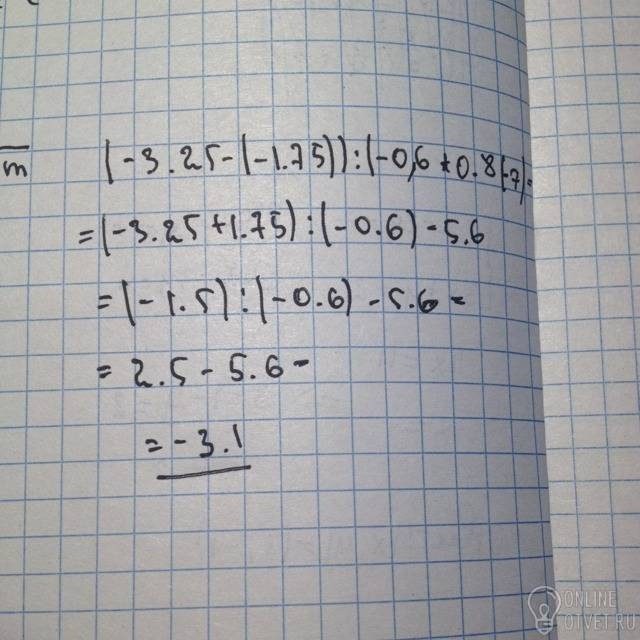 m
(-3.25-(-1.75)):(-0,6+0.8(-7)=
=(-3.25+1.75):(-0.6)-5.6
=(-1.5):(-0.6)-5.6=
=2.5-5.6=
=-3.1
ONLINE
OTVET.RU